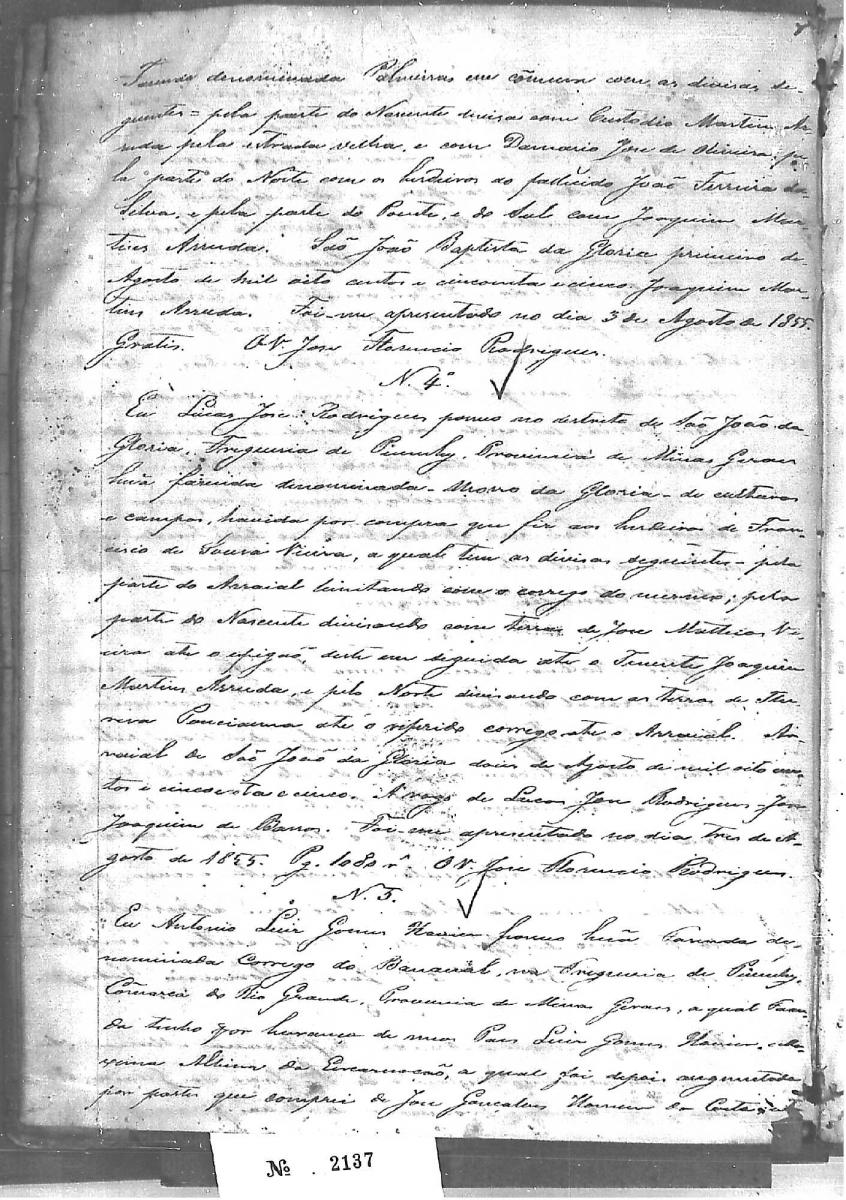 Fazenda denominada Palmeiras em cômum com as divisas se-
guintes = pela parte do Nascente divisa com Custodio Martins Ar-
ruda pela estrada velha, e com Damazio Jose de Oliveira, pe-
la parte do Norte com os herdeiros do fallecido João Ferreira da
Silva, e pela parte do Poente, e do Sul com Joaquim Mar-
tins Arruda. São João Baptista da Gloria primeiro de
Agosto de mil oito centos e cincoenta e cinco. Joaquim Mar-
tins Arruda. Foi-me apresentado no dia 3 de Agosto de 1855.
Gratis. O V. Jose Florencio Rodrigues.
N. 4º
Eu Lucas Jose Rodrigues possuo no destrito de São João da
Gloria, Freguesia de Piumhy, Provincia de Minas Geraes
huã fazenda denominada - Morro da Gloria - de culturas
e campos, havida por compra que fiz aos herdeiros de Fran-
cisco de Souza Vieira, a qual tem as divisas seguintes - pela
parte do Arraial limitando com o corrego do mesmo; pela
parte do Nascente divisando com terras de Jose Mathias Vi-
eira até o espigão, deste em seguida até o Tenente Joaquim
Martins Arruda, e pelo Norte divisando com as terras de
até o referido corrego até o Arraial. Ar-
raial de São João da Gloria dois de Agosto de mil oito cen-
tos e cincoenta e cinco. A rogo de Lucas Jose Rodrigues - Jose
Joaquim de Barros. Foi-me apresentado no dia tres de A-
gosto de 1855. Pg. 1080 rs. O V. Jose Florencio Rodrigues.
N. 5.
Eu Antonio Luiz Gomes possuo huã Fazenda de-
nominada Corrego do Bananal, na Freguesia de Piumhy,
Comarca do Rio Grande, Provincia de Minas Geraes, a qual Fazen-
da tenho por herança de meos Pais Luiz Gomes
Albina da Encarnação, a qual foi depois augmentada
por partes que comprei de Jose Gonçalves da Costa
Nº 2137